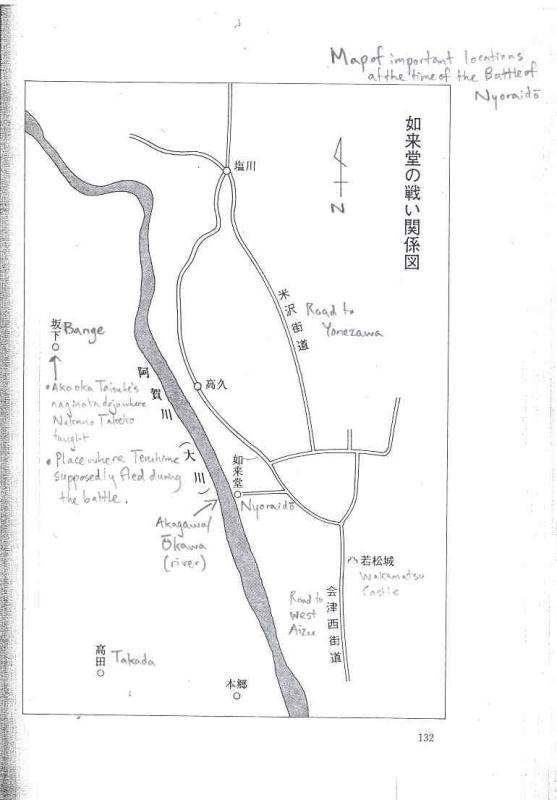 Map of important locations
at the time of the Battle of
Nyoraidō
如来堂の戦い関係図
塩川
N
米沢街道
Road to
Yonezawa
坂下
Bange
• Akaoka Taisuke's
naginata dojo where
Nakano Takeko
taught
• Place where Teruhime
supposedly fled during
the battle.
阿賀川
(大川)
高久
如来堂
Nyoraidō
Akagawa/
Ōkawa
(river)
若松城
Wakamatsu
Castle
Road to
West
Aizu
会津西街道
高田
Takada
本郷
132